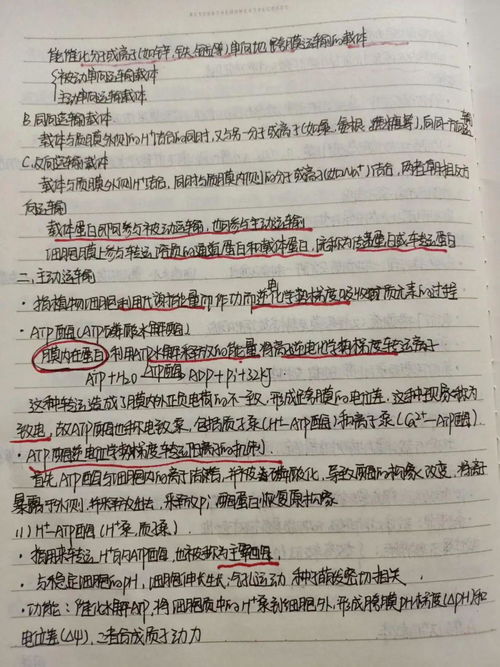 能催化分子或离子(如锌、铁、铜等)单向地跨膜运输的载体
被动单向运输载体
主动单向运输载体
B.同向运输载体
载体与质膜外侧的H⁺结合的同时,又与另一分子或离子(如氯、氨根、蔗糖等),同向
C.反向运输载体
载体与质膜外侧H⁺结合,同时与质膜内侧的分子或离子(如Na⁺)结合,两者朝相反方
向运输
载体蛋白既可参与被动运输,也可参与主动运输
细胞膜上参与转运溶质的通道蛋白和载体蛋白,统称为传递蛋白或转运蛋白
二、主动运输
·指植物细胞利用代谢能量作功而逆电化学势梯度吸收矿质元素的过程
·ATP酶(ATP磷酸水解酶)
膜内在蛋白 利用ATP水解释放的能量,将离子逆电化学势梯度转运离子
ATP+H₂O ATP酶 ADP+Pi+32KJ
这种转运造成了膜内外正负电荷的不一致,形成跨膜的电位差,这种现象称为
致电,故ATP酶也称电致泵,包括质子泵(H⁺-ATP酶)和离子泵(Ca²⁺-ATP酶).
·ATP酶逆电化学势梯度转运阳离子的机制
首先ATP酶与细胞内的离子结合,并被磷酸化,导致酶的构象改变,将离子
暴露于外侧,并释放出去,释放Pi,酶蛋白恢复原构象
(1)H⁺-ATP酶(H⁺泵,质子泵)
·指用来转运H⁺的ATP酶,也被称为主宰酶
·与稳定细胞的pH,细胞伸长生长,气孔运动,种子萌发密切相关.
·功能:催化水解ATP,将细胞质中的H⁺泵到细胞外,形成跨膜pH梯度(ΔpH)和
电位差(Δψ),二者合成质子动力